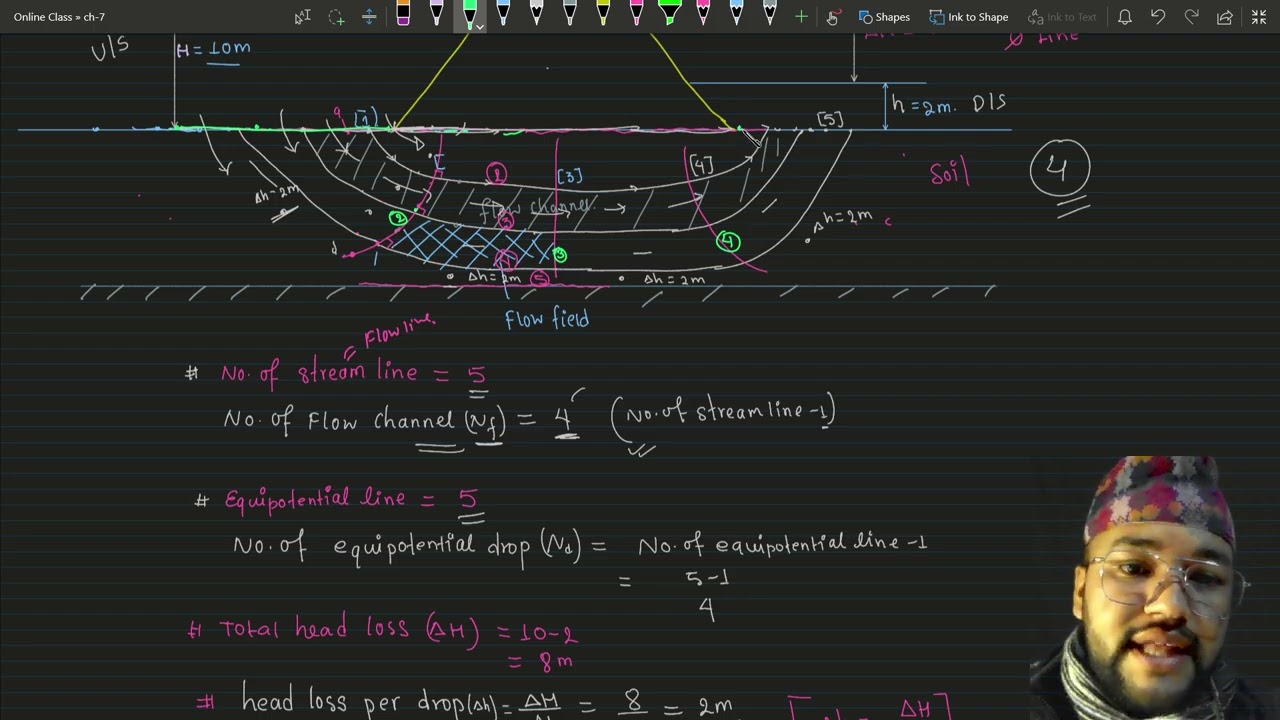 Online Class » ch-7
Shapes
Ink to Shape
Ink to Text
U/S
H = 10m
h = 2m. D/S
[1]
[3]
[4]
[5]
Soil
4
Δh = 2m
flow channel
Δh = 2m
1
2
3
4
5
2
3
4
Δh = 2m
Δh = 2m
Flow field
Flow line
# No. of stream line = 5
No. of Flow channel (Nf) = 4 (No. of stream line -1)
# Equipotential line = 5
No. of equipotential drop (Nd) = No. of equipotential line -1
= 5-1
4
# Total head loss (ΔH) = 10-2
= 8m
# head loss per drop (Δh) = ΔH = 8 = 2m
ΔH